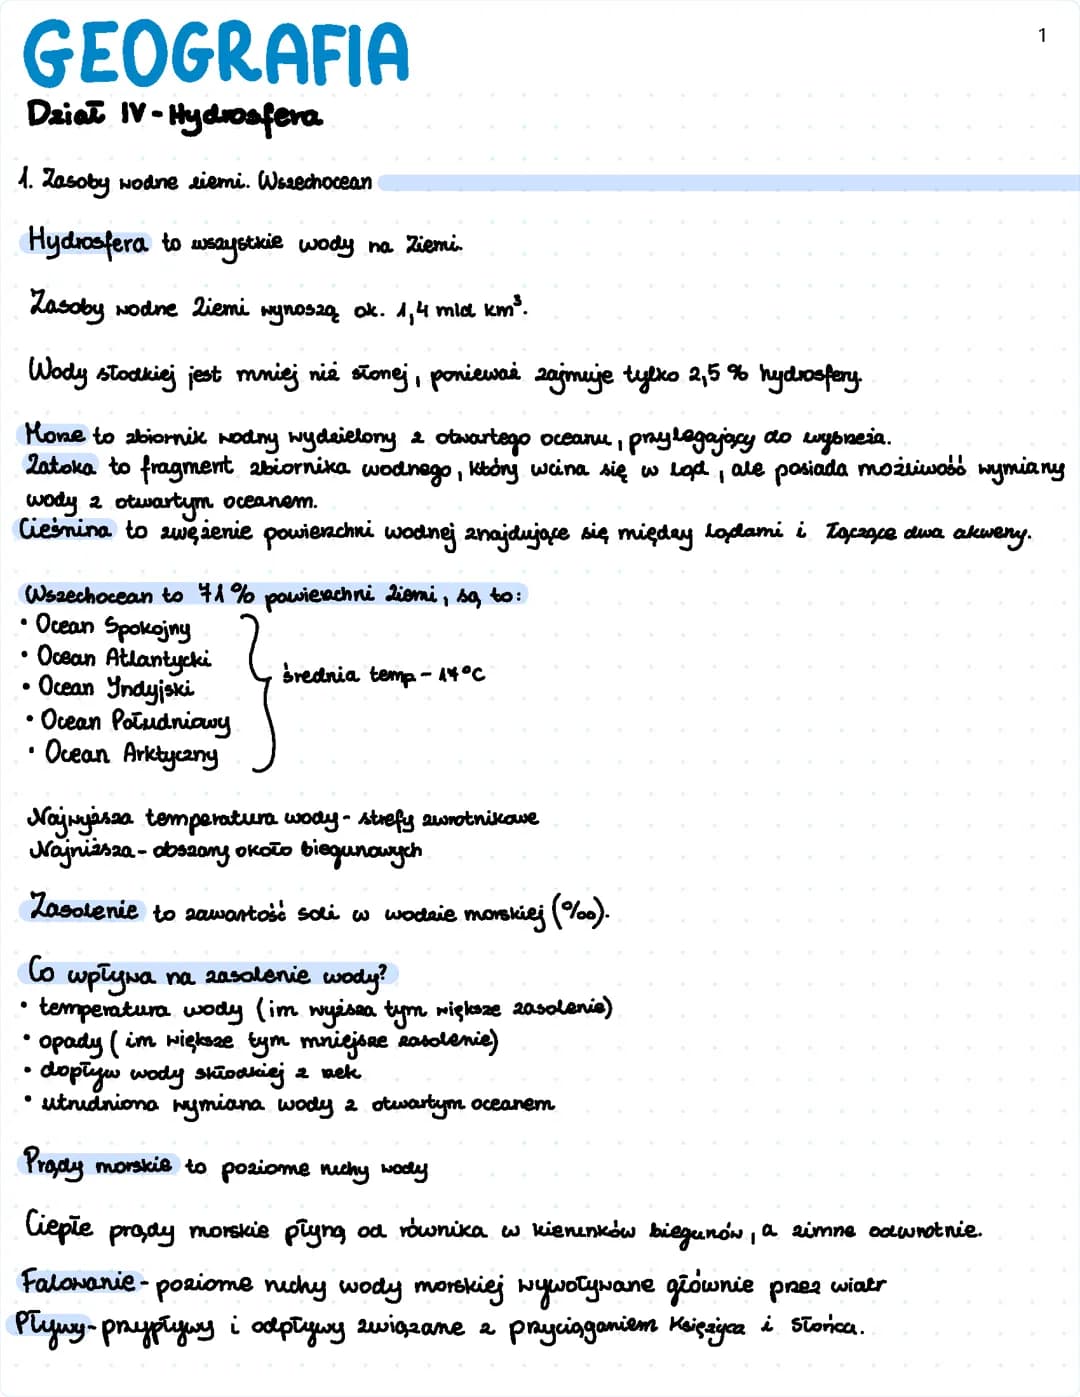 GEOGRAFIA
1
Dział IV - Hydrosfera
1. Zasoby wodne ziemi. Wszechocean
Hydrosfera to wszystkie wody na Ziemi.
Zasoby wodne Ziemi wynoszą ok. 1,4 mld km³.
Wody słodkiej jest mniej niż słonej, ponieważ zajmuje tylko 2,5 % hydrosfery.
Morze to zbiornik wodny wydzielony z otwartego oceanu, przylegający do wybrzeża.
Zatoka to fragment zbiornika wodnego, który wcina się w ląd, ale posiada możliwość wymiany
wody z otwartym oceanem.
Cieśnina to zwężenie powierzchni wodnej znajdujące się między lądami i łączące dwa akweny.
Wszechocean to 71% powierzchni Ziemi, są to:
• Ocean Spokojny
• Ocean Atlantycki
• Ocean Indyjski
• Ocean Południowy
• Ocean Arktyczny
średnia temp - 17°C
Najwyższa temperatura wody - strefy zwrotnikowe
Najniższa - obszary około biegunowych
Zasolenie to zawartość soli w wodzie morskiej (‰).
Co wpływa na zasolenie wody?
• temperatura wody (im wyższa tym większe zasolenie)
• opady (im większe tym mniejsze zasolenie)
• dopływ wody skłodkiej z rzek
• utrudniona wymiana wody z otwartym oceanem
Prądy morskie to poziome ruchy wody
Ciepłe prądy morskie płyną od równika w kierunków biegunów, a zimne odwrotnie.
Falowanie - poziome ruchy wody morskiej wywoływane głównie przez wiatr
Pływy - przypływy i odpływy związane z przyciąganiem Księżyca i Słońca.